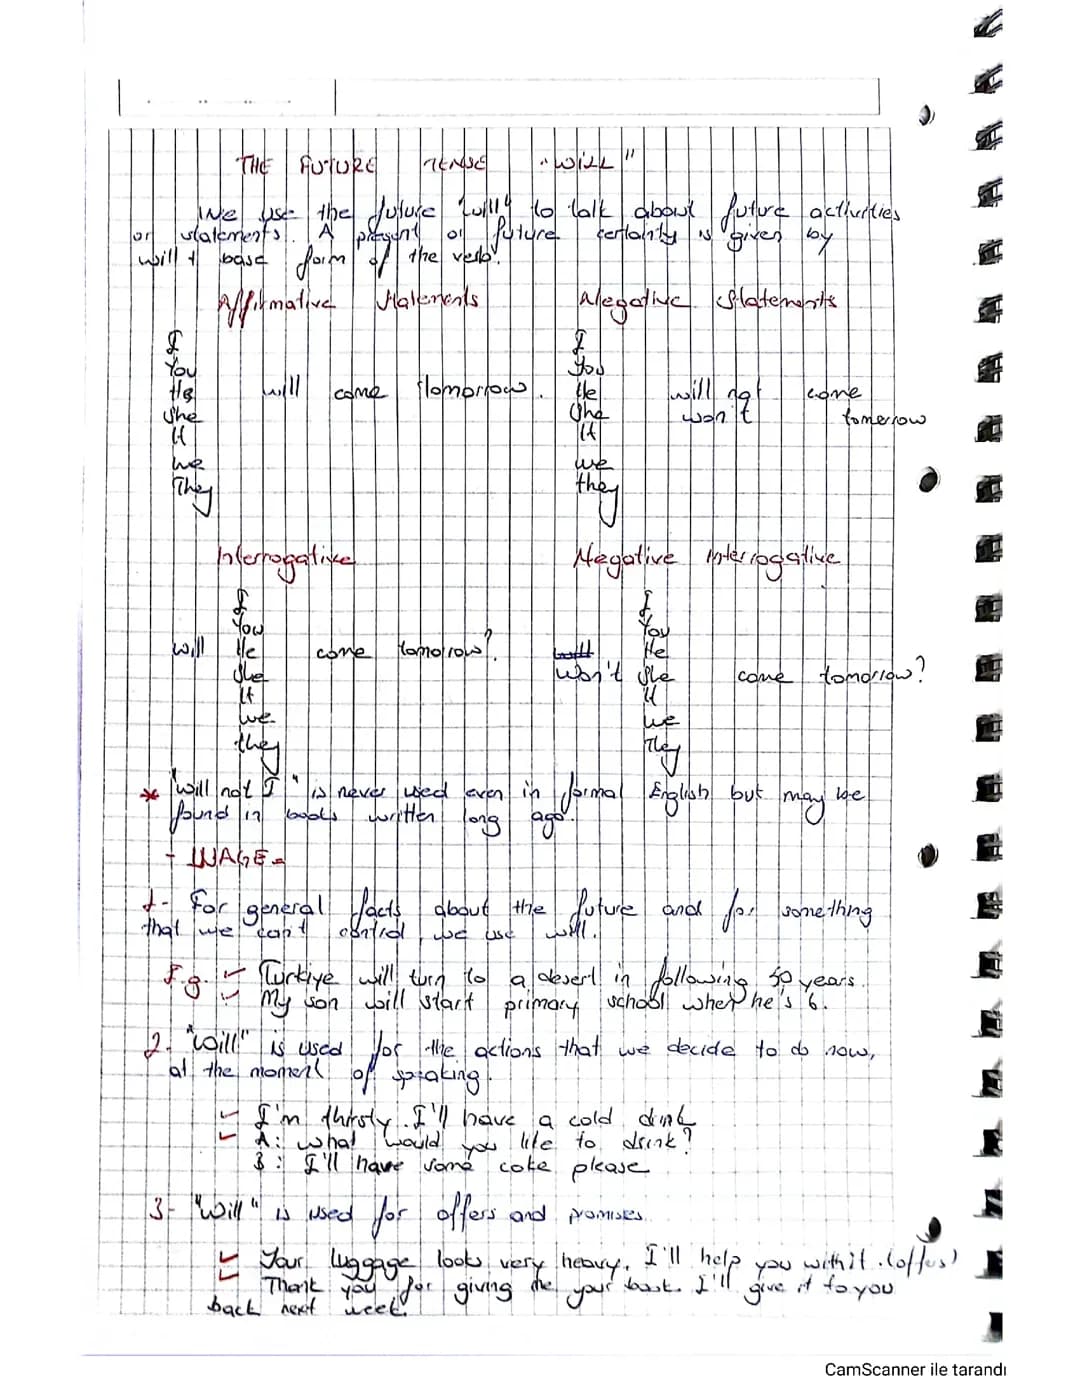 THE FUTURE TENSE "WILL"
We use the future "will" to talk about future activities
or statements. A present or future certainty is given by
will + base form of the verb.
Affirmative Statements Negative Statements
I I
You You
He will come tomorrow. He will not come
She She won't tomerrow
It It
we we
They they
Interrogative Negative Interrogative
I I
You You
will He come tomorrow? He
She Won't She come tomorrow?
It It
we we
they They
* "will not I" is never used even in formal English but may be
found in books written long ago.
- USAGE -
1- For general facts about the future and for something
that we can't control, we use will.
E.g. - Türkiye will turn to a desert in following 50 years.
- My son will start primary school when he's 6.
2- "will" is used for the actions that we decide to do now,
at the moment of speaking.
- I'm thirsty. I'll have a cold drink
- A: what would you like to drink?
B: I'll have some coke please
3- "Will" is used for offers and promises.
- Your luggage looks very heavy. I'll help you with it. (offers)
- Thank you for giving me your book. I'll give it to you
back next week.
CamScanner ile tarandı